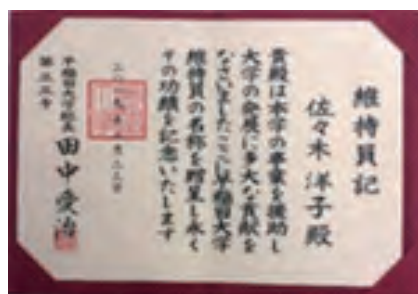 維持員記
佐々木洋子殿
貴殿は本学の事業を援助し
大学の発展に多大な貢献を
なさいましたここに早稲田大学
維持員の名称を贈呈し永く
その功績を記念いたします
早稲田大学総長
田中愛治